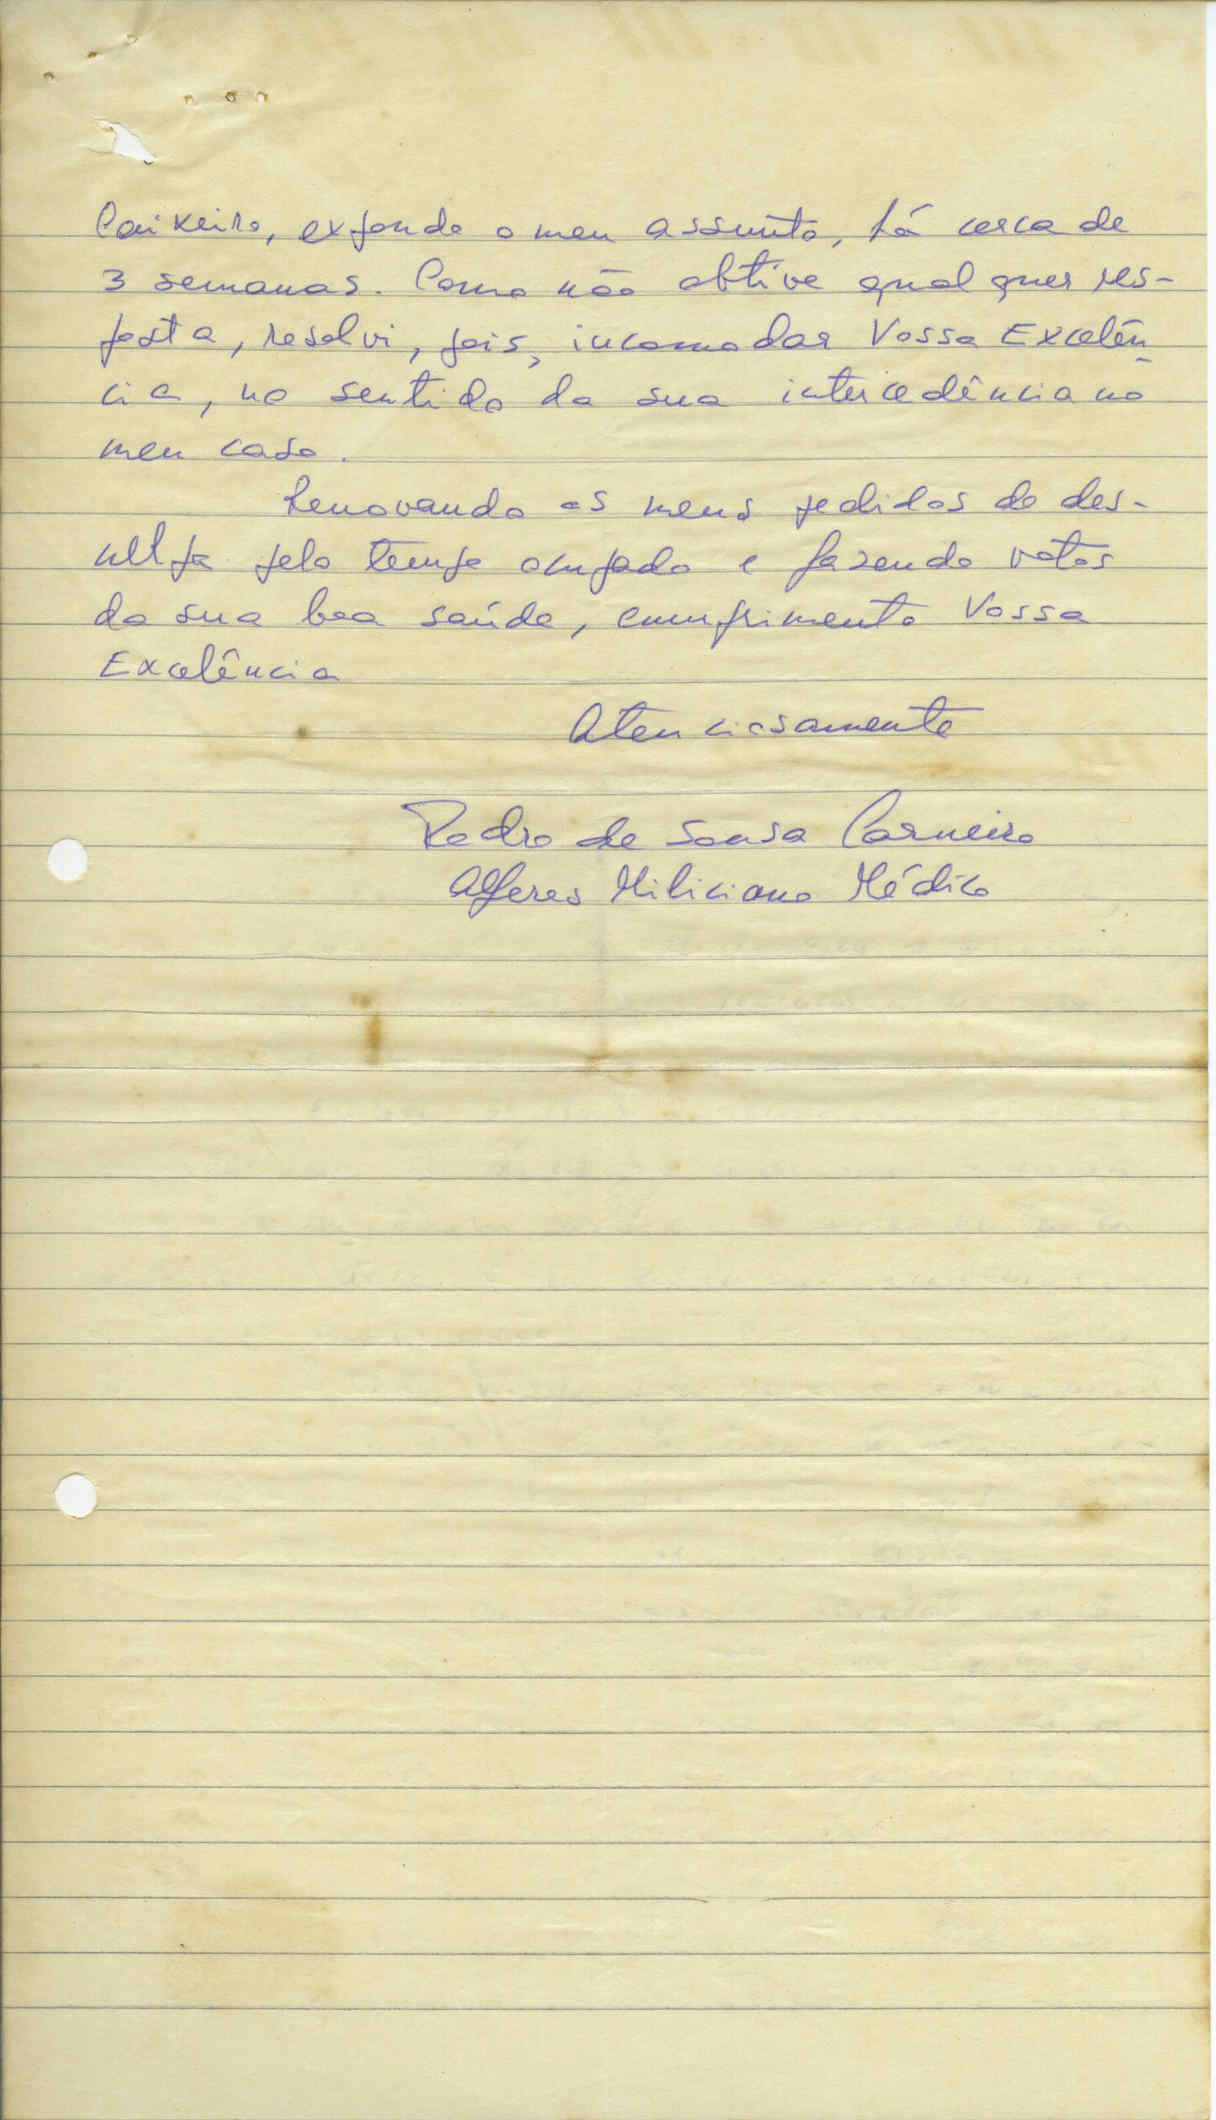 Caixeiro, expondo o meu assunto, há cerca de
3 semanas. Como não obtive qualquer res-
posta, resolvi, pois, incomodar Vossa Excelên
cia, no sentido da sua intercedência no
meu caso.
Renovando os meus pedidos de des-
culpa pelo tempo ocupado e fazendo votos
da sua boa saúde, cumprimento Vossa
Excelência
Atenciosamente
Pedro de Sousa Carneiro
Alferes Miliciano Médico